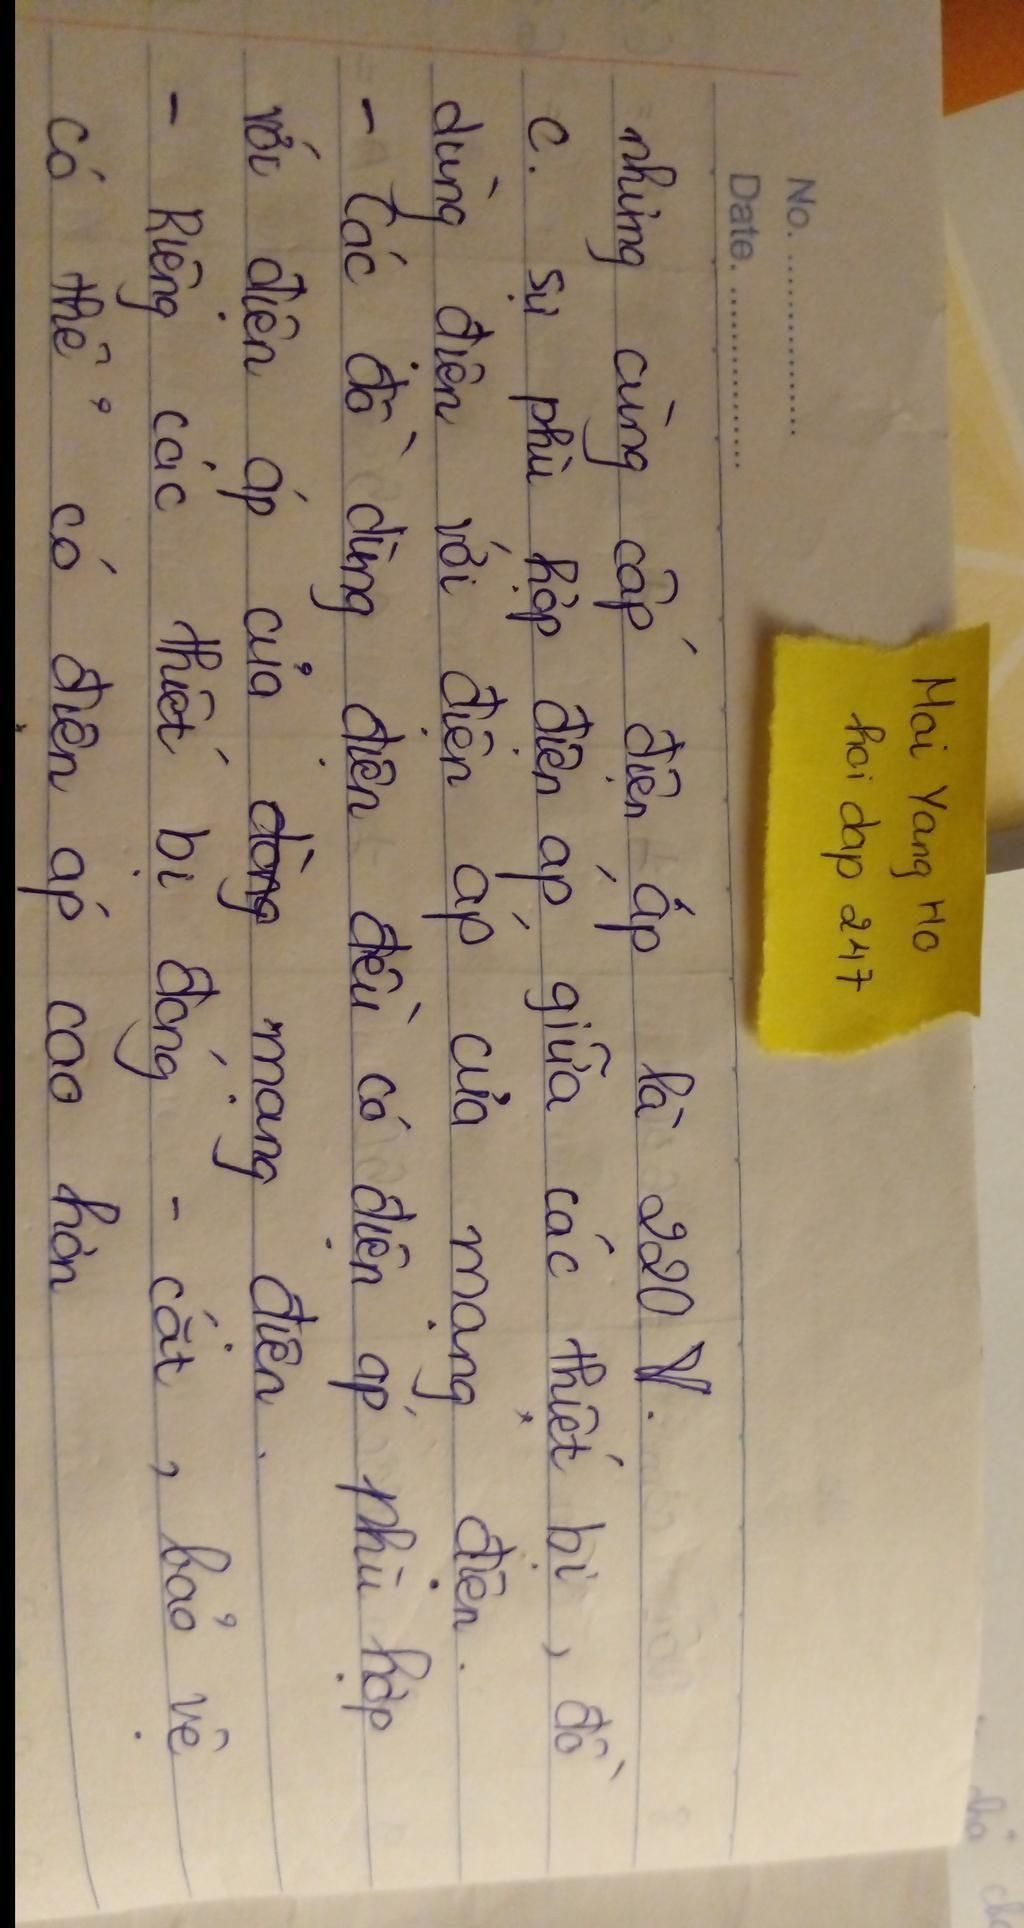 No. ...............
Date. ...............
Mai Vang Ho
hoi dap 247
nhưng cùng cấp điện áp là 220 V.
c. sự phù hợp điện áp giữa các thiết bị, đồ
dùng điện với điện áp của mạng điện.
- Các đồ dùng điện đều có điện áp phù hợp
với điện áp của dòng mạng điện.
- Riêng các thiết bị đóng - cắt, bảo vệ
có thể có điện áp cao hơn